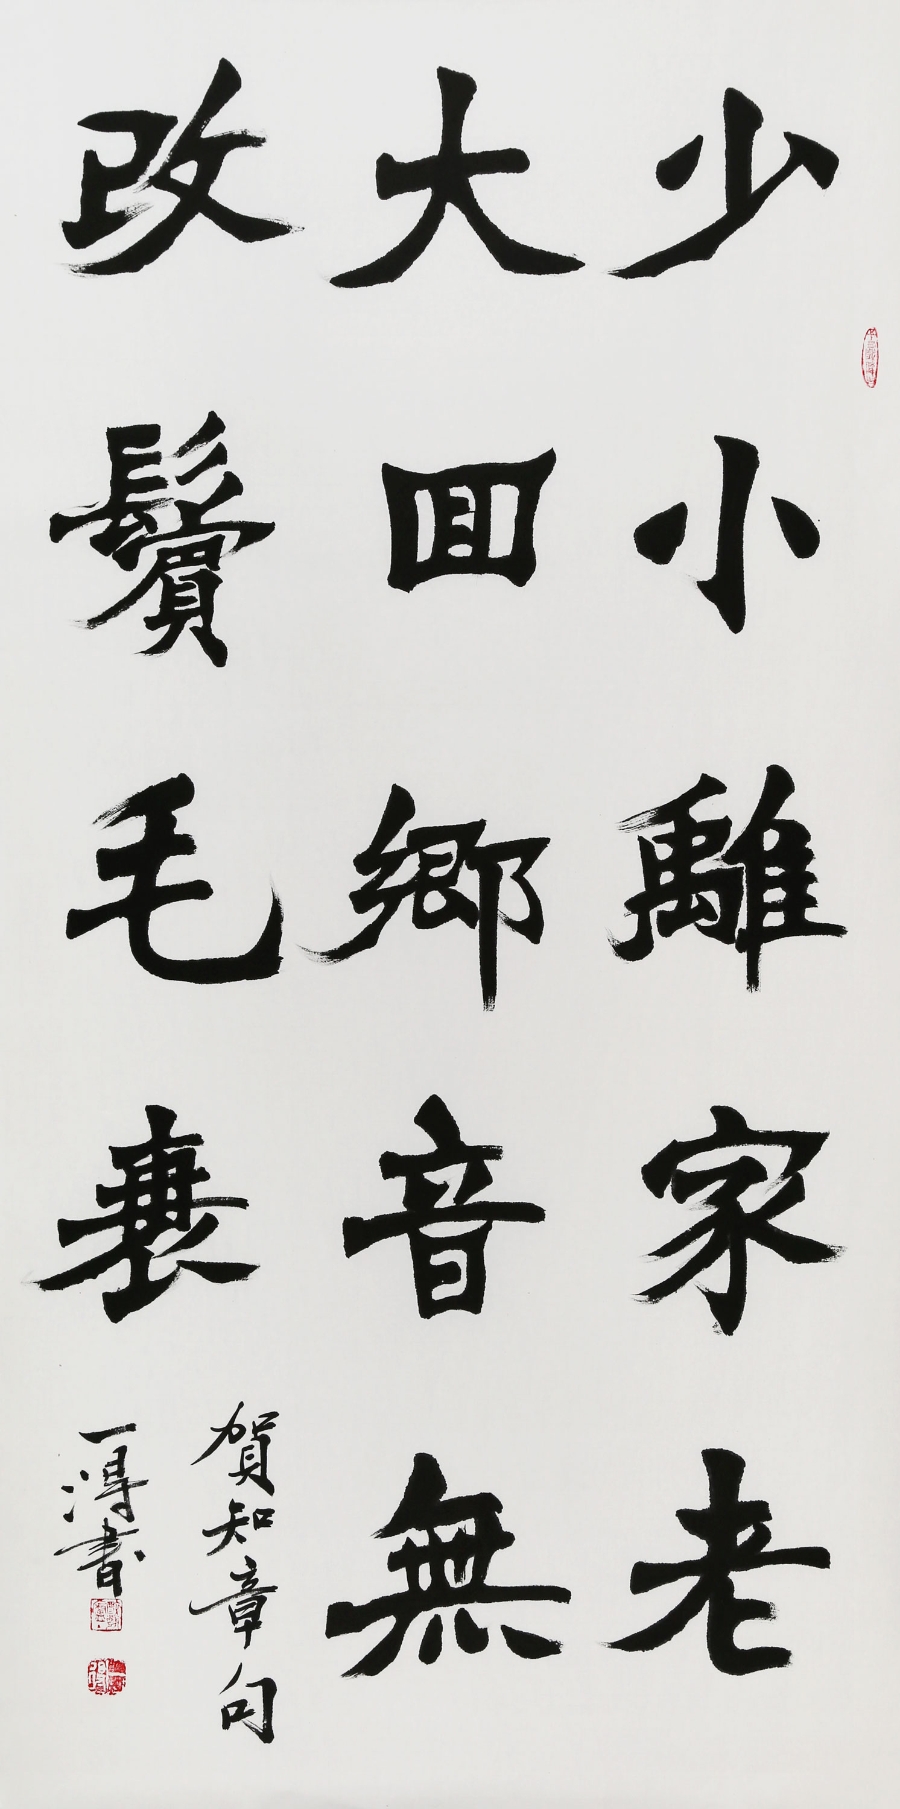 少小離家老
大回鄉音無
改鬢毛衰
賀知章句
一淂書